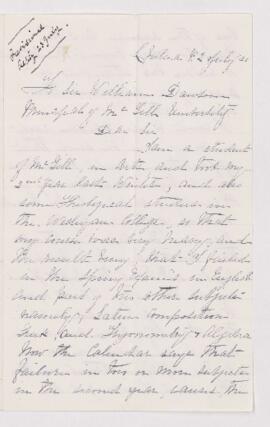 Provisional
July
To Sir William Dawson
Principal of McGill University
Dear Sir
I am a student
of McGill, in Arts and took my
2nd year last Winter, and also
some Theological studies in
the Wesleyan College, so that
my course was very heavy, and
the result being, that I failed
in the Spring Exams in English
and parts of two other subjects
namely, Latin Composition
and Trigonometry & Algebra
Now the Calendar says that
failure in two or more subjects
in the second year, causes the